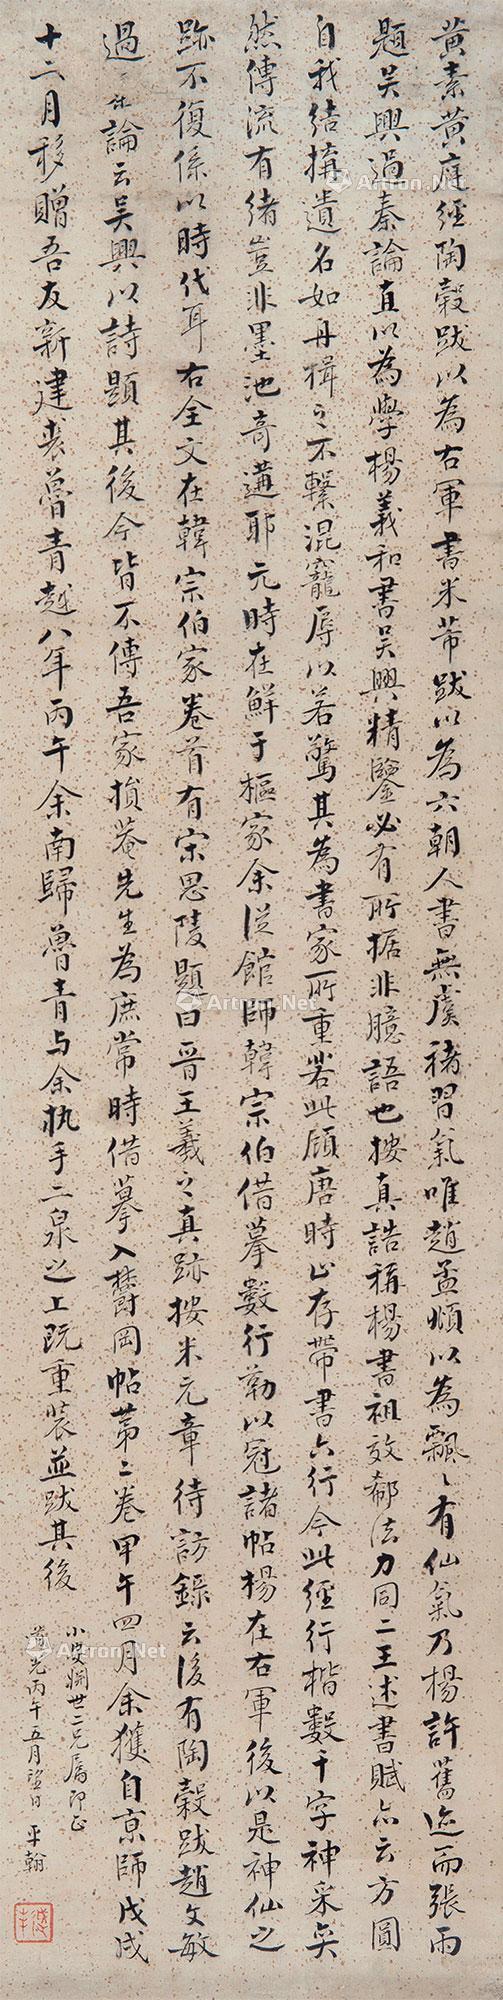 黄素黄庭經陶穀跋以為右軍書米芾跋以為六朝人書無虞褚習氣唯趙孟頫以為飄〻有仙氣乃楊許舊迹而張雨
題吴興過秦論直以為學楊義和書吴興精鑒必有所据非臆語也按真誥稱楊書祖效郗法力同二王述書賦亦云方圓
自我結構遺名如舟楫之不繫混寵辱以若驚其為書家所重若此顧唐時止存帶書六行今此經行楷數千字神采奕
然傳流有緒豈非墨池奇遘耶元時在鮮于樞家余従館師韓宗伯借摹數行勒以冠諸帖楊在右軍後以是神仙之
跡不復係以時代耳右全文在韓宗伯家卷首有宋思陵題曰晋王羲之真跡按米元章待訪録云後有陶穀跋趙文敏
過論云吴興以詩題其後今皆不傳吾家損菴先生為庶常時借摹入欝岡帖苐二卷甲午四月余獲自京師戊戌
十二月移贈吾友新建裘魯青越八年丙午余南歸魯青与余執手二泉之上既重裝並跋其後
小史嫻世二兄屬即正
道光丙午五月望日 平翰